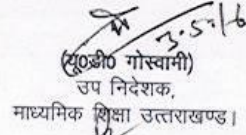 3.5.16
(यू0डी0 गोस्वामी)
उप निदेशक,
माध्यमिक शिक्षा उत्तराखण्ड।